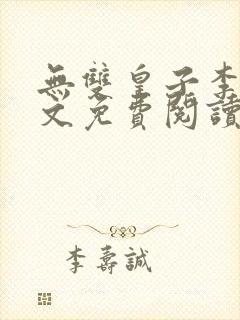 無雙皇子李
文免費閱讀
李壽誠